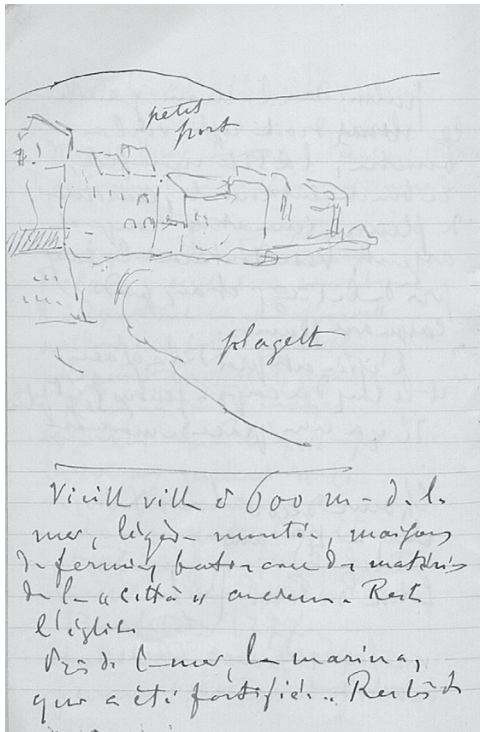 petit
port
plagett
Vieille ville à 600 m. de la
mer, légère montée, maisons
de fermiers, bâties avec des matériaux
de la "città" ancienne. Reste
l'église
Près de la mer, la marina,
que a été fortifiée. Restes de